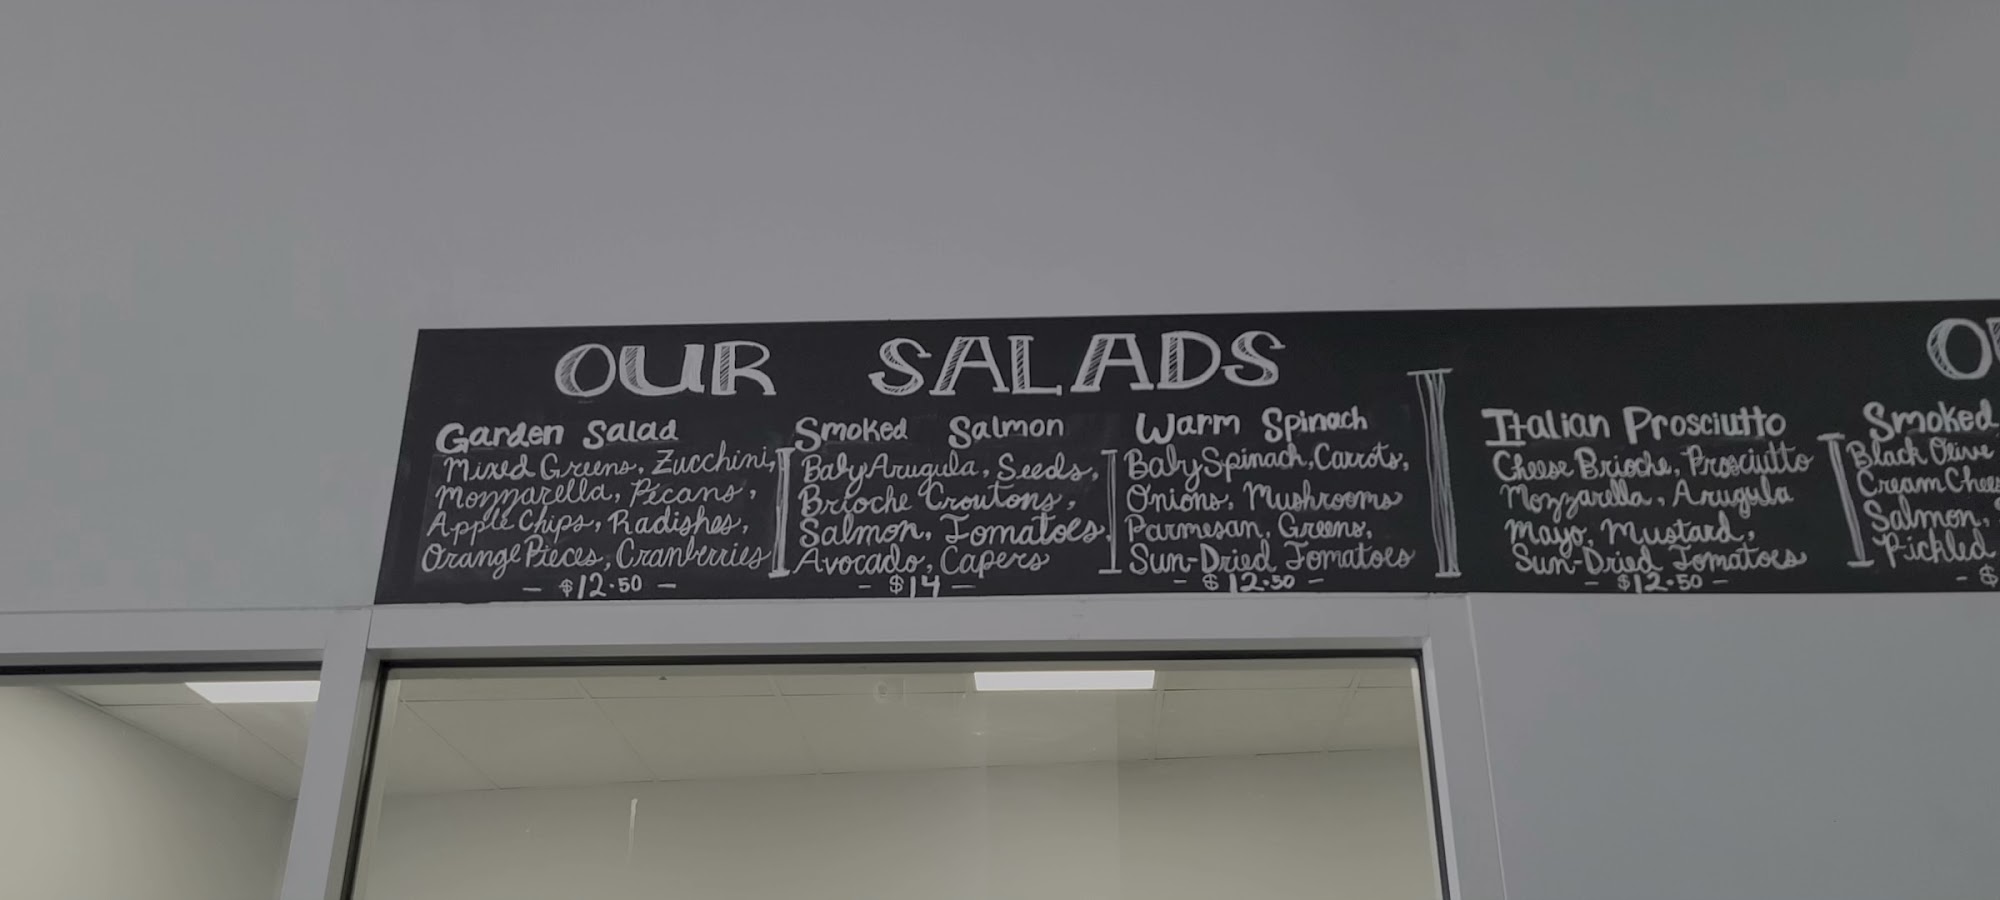 OUR SALADS
Garden Salad
Mixed Greens, Zucchini,
Mozzarella, Pecans,
Apple Chips, Radishes,
Orange Pieces, Cranberries
- $12.50 -
Smoked Salmon
Baby Arugula, Seeds,
Brioche Croutons,
Salmon, Tomatoes,
Avocado, Capers
- $14 -
Warm Spinach
Baby Spinach, Carrots,
Onions, Mushrooms
Parmesan, Greens,
Sun-Dried Tomatoes
- $12.50 -
Italian Prosciutto
Cheese Brioche, Prosciutto
Mozzarella, Arugula
Mayo, Mustard,
Sun-Dried Tomatoes
- $12.50 -
Smoked
Black Olive
Cream
Salmon,
Pickled
- $